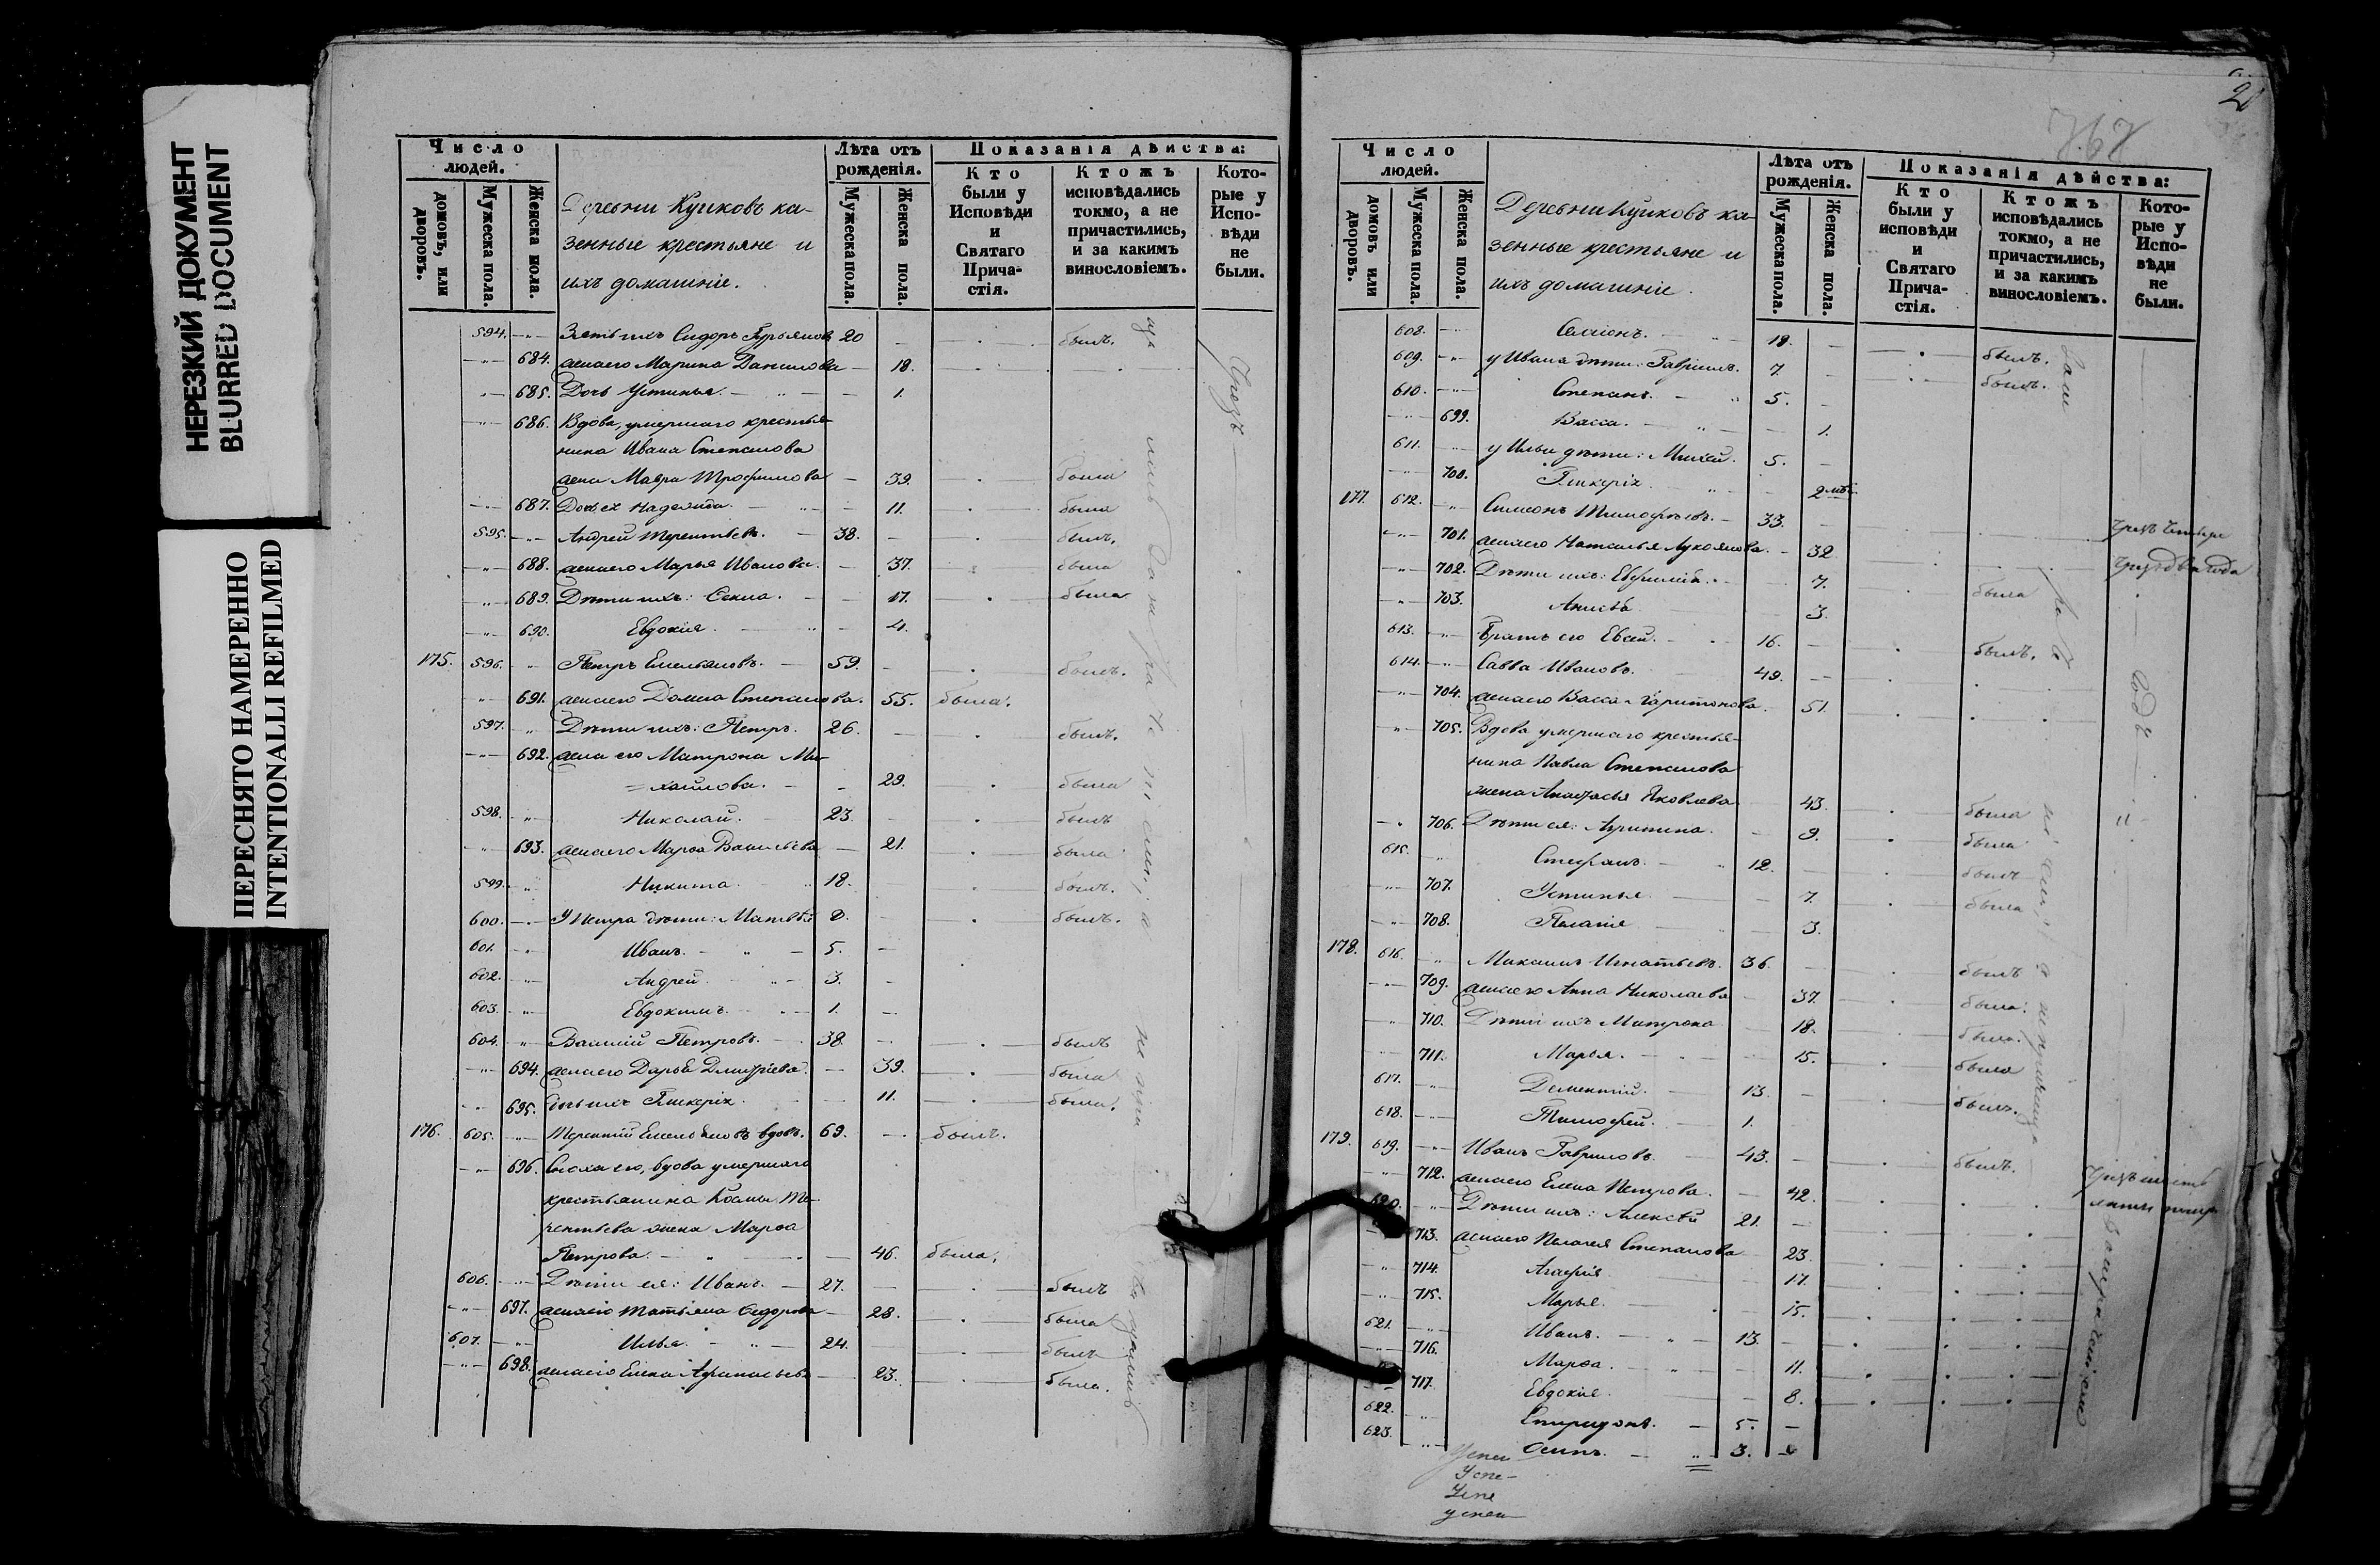 НЕРЕЗКИЙ ДОКУМЕНТ
BLURRED DOCUMENT
ПЕРЕСНЯТО НАМЕРЕННО
INTENTIONALLI REFILMED
Число людей.
домовъ, или дворовъ.
Мужеска пола.
Женска пола.
Деревни Кучковъ ка-
зенные крестьяне и
ихъ домашніе.
Лѣта отъ рожденія.
Мужеска пола.
Женска пола.
Показанія дѣйства:
Кто были у Исповѣди и Святаго Прича-стія.
Ктожъ исповѣдались токмо, а не причастились, и за какимъ винословіемъ.
Кото-рые у Испо-вѣди не были.
594. Зять ихъ Сидоръ Гурьяновъ 20 былъ.
684. жена его Марина Данилова 18.
685. Дочь Устинья. 1.
686. Вдова, умершаго крестья-
нина Ивана Степанова
жена Мавра Трофимова 39. была
687. Дочь ея Надежда. 11. была
595. Андрей Терентьевъ. 38. былъ.
688. жена его Марья Иванова. 37. была
689. Дѣти ихъ: Секла. 17. была
690. Евдокія. 4.
175. 596. Петръ Емельяновъ. 59. былъ.
691. жена его Домна Степанова. 55. была.
597. Дѣти ихъ: Петръ. 26. былъ.
692. жена его Матрона Ми-
=хайлова. 29. была
598. Николай. 23. былъ
693. жена его Марѳа Васильева 21. была
599. Никита. 18. былъ.
600. У Петра дѣти: Матвѣй 8. былъ.
601. Иванъ. 5.
602. Андрей 3.
603. Евдокимъ. 1.
604. Василій Петровъ. 38. былъ
694. жена его Дарья Дмитріева. 39. была
695. Дочь ихъ Гликерія. 11. была.
176. 605. Терентій Емельяновъ вдовъ. 69. былъ.
696. Сноха его, вдова умершаго
крестьянина Космы Те-
рентьева жена Марѳа
Петрова. 46. была,
606. Дѣти ея: Иванъ. 27. былъ
697. жена его Татьяна Ѳедорова 28. была
607. Илья. 24. былъ
698. жена его Елена Афанасьева 23. была.
Число людей.
домовъ или дворовъ.
Мужеска пола.
Женска пола.
Деревни Кучковъ ка-
зенные крестьяне и
ихъ домашніе.
Лѣта отъ рожденія.
Мужеска пола.
Женска пола.
Показанія дѣйства:
Кто были у исповѣди и Святаго Прича-стія.
Ктожъ исповѣдались токмо, а не причастились, и за какимъ винословіемъ.
Кото-рые у Испо-вѣди не были.
608. Симеонъ. 18. былъ.
609. у Ивана дѣти: Гавріилъ. 7. былъ.
610. Степанъ. 5.
699. Васса. 1.
611. у Ильи дѣти: Михей. 5.
700. Гликерія 2
177. 612. Симеонъ Тимофѣевъ. 33.
701. жена его Наталья Лукоянова. 32
702. Дѣти ихъ: Евфимія. 7. была
703. Анисья 3.
613. Братъ его Евсей. 16. былъ.
614. Савва Ивановъ. 49.
704. жена его Васса Харитонова. 51.
705. Вдова умершаго крестья-
нина Павла Степанова
жена Анастасья Яковлева 43. была
706. Дѣти ея: Агрипина. 9. была
615. Стефанъ. 12. былъ
707. Устинья 7. была
708. Пелагія 3.
178. 616. Максимъ Игнатьевъ. 36. былъ
709. жена его Анна Николаева 37. была.
710. Дѣти ихъ Матрона 18. была.
711. Марья. 15. была
617. Дементій. 13. былъ.
618. Тимофей. 1.
179. 619. Иванъ Гавриловъ. 43. былъ.
712. жена его Елена Петрова. 42.
620. Дѣти ихъ: Алексѣй 21.
713. жена его Пелагея Степанова 23.
714. Агафія 17.
715. Марья. 15.
621. Иванъ. 13.
716. Марѳа. 11.
717. Евдокія 8.
622. Спиридонъ. 5.
623. Осипъ. 3.